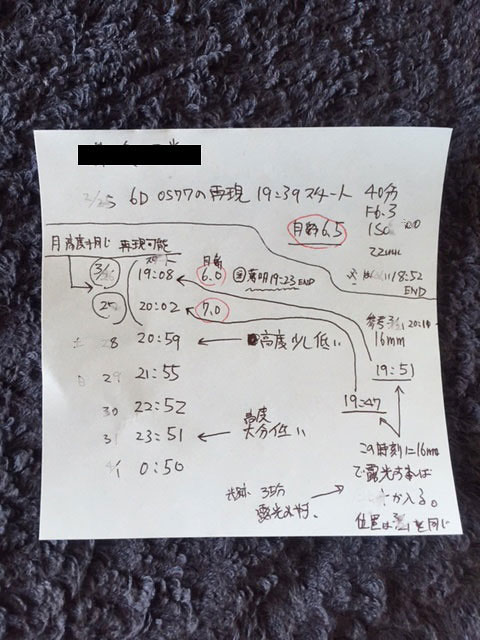 6D 0577の再現 19:39 スタート 40分
F6.3
ISO
22mm
18:52
END
月齢 6.5
月高度同じ 再現可能
スタート
月齢
19:08 6.0 薄明19:23 END
25 20:02 7.0
土 28 20:59 ← 高度少し低い
日 29 21:55
30 22:52
31 23:51 ← 高度大分低い
4/1 0:50
参考 20:10
16mm
19:51
19:47
この時刻に16mm
で露光すれば
が入る。
位置は 同じ
35分
露光